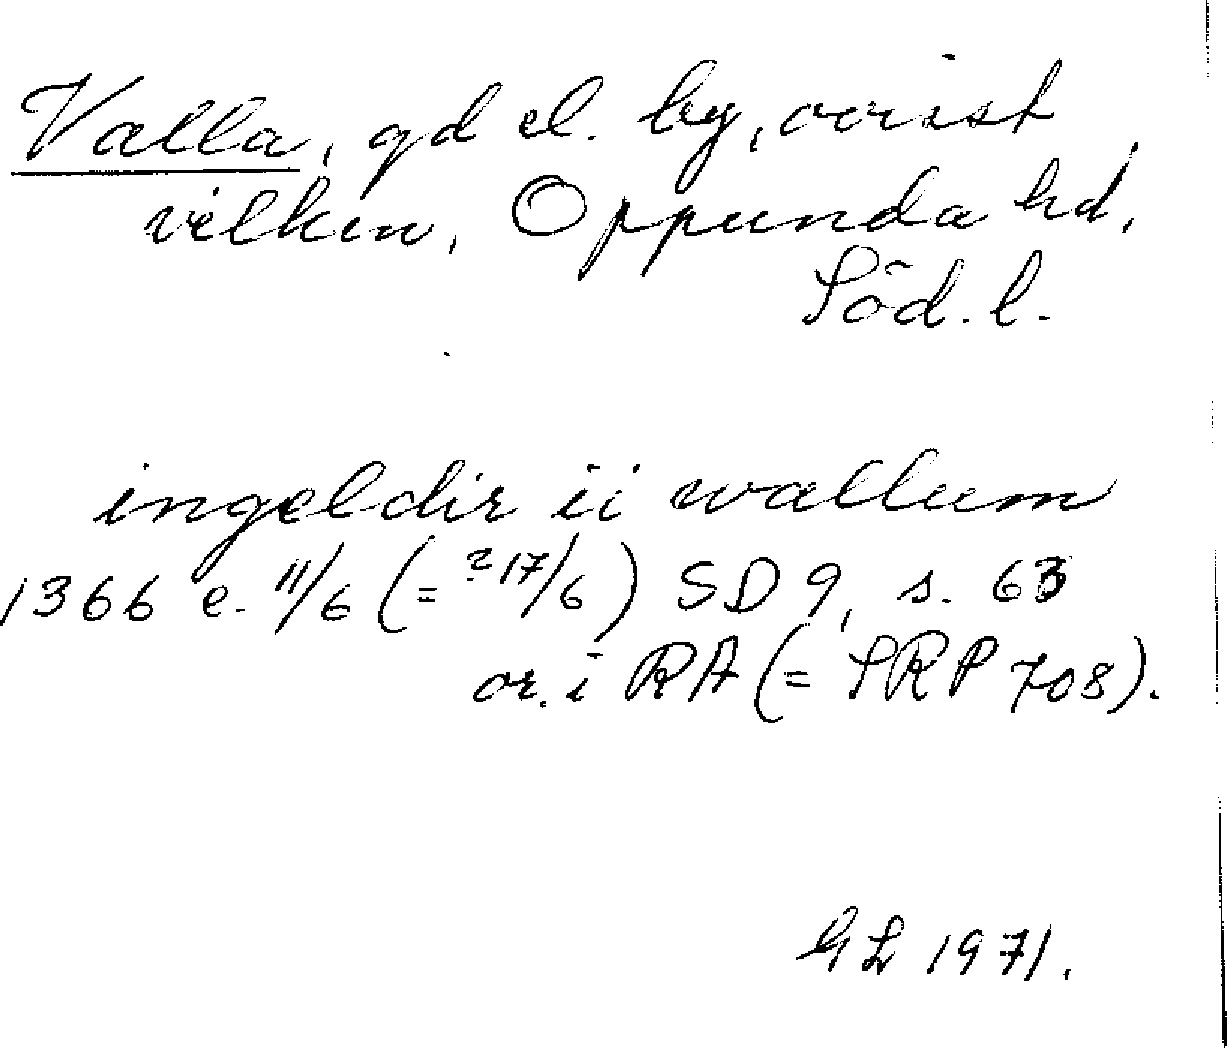 Valla, gd el. by, ovisst
vilken, Oppunda hd,
Söd. l.
ingeldir ii wallum
1366 e. 11/6 (= ? 17/6) SD 9, s. 63
or. i RA (= SRP 708).
GL 1971.